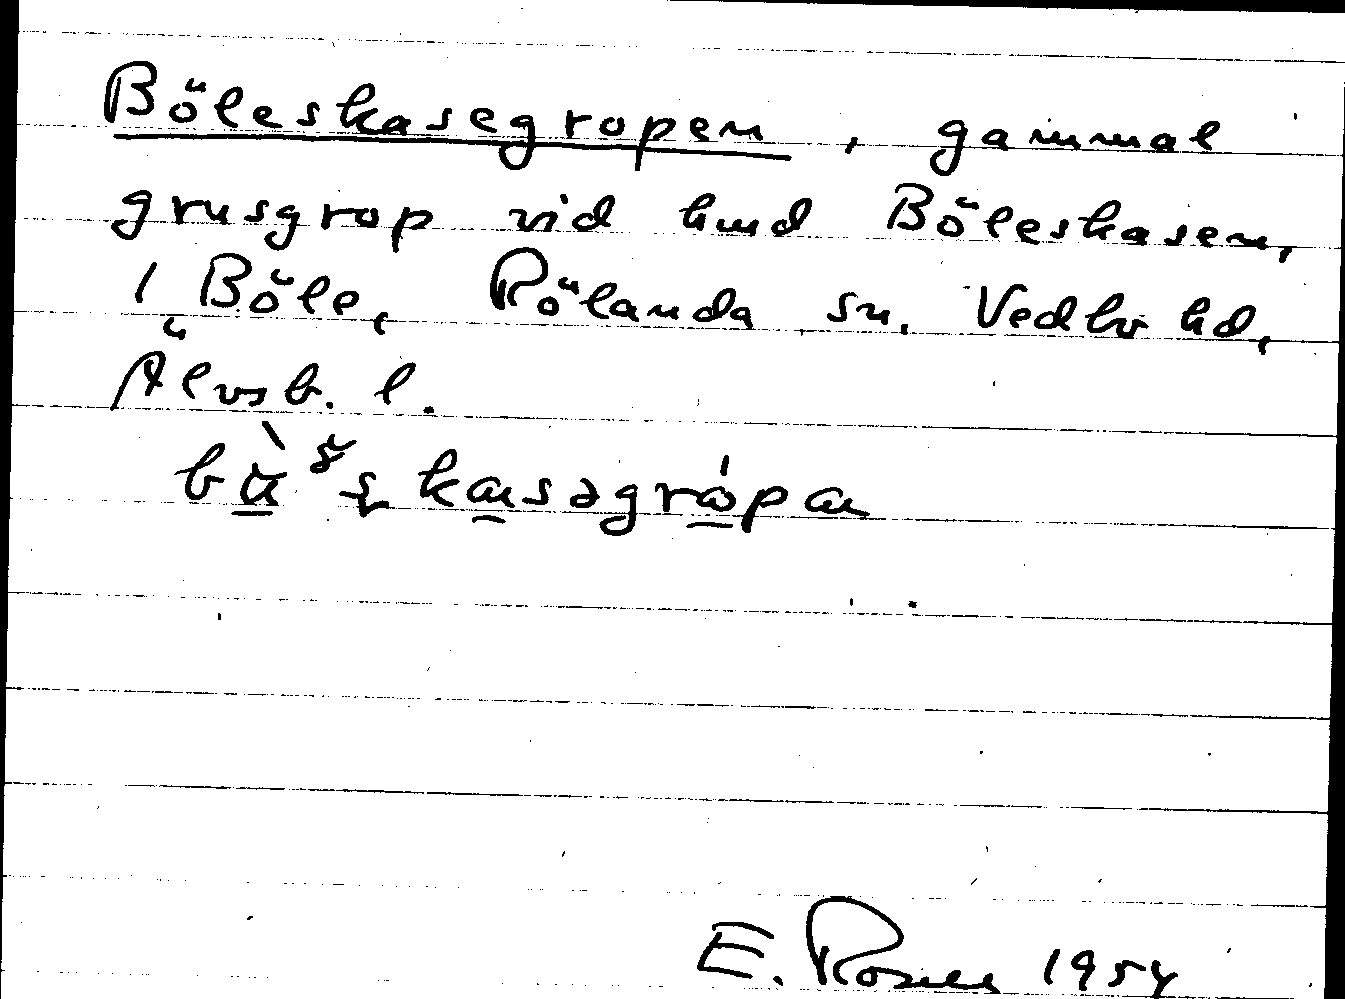 Böleskasegropen, gammal
grusgrop vid hmd Böleskasen,
i Böle, Rölanda sn. Vedbo hd,
Älvsb. l.
E. Rosell 1954